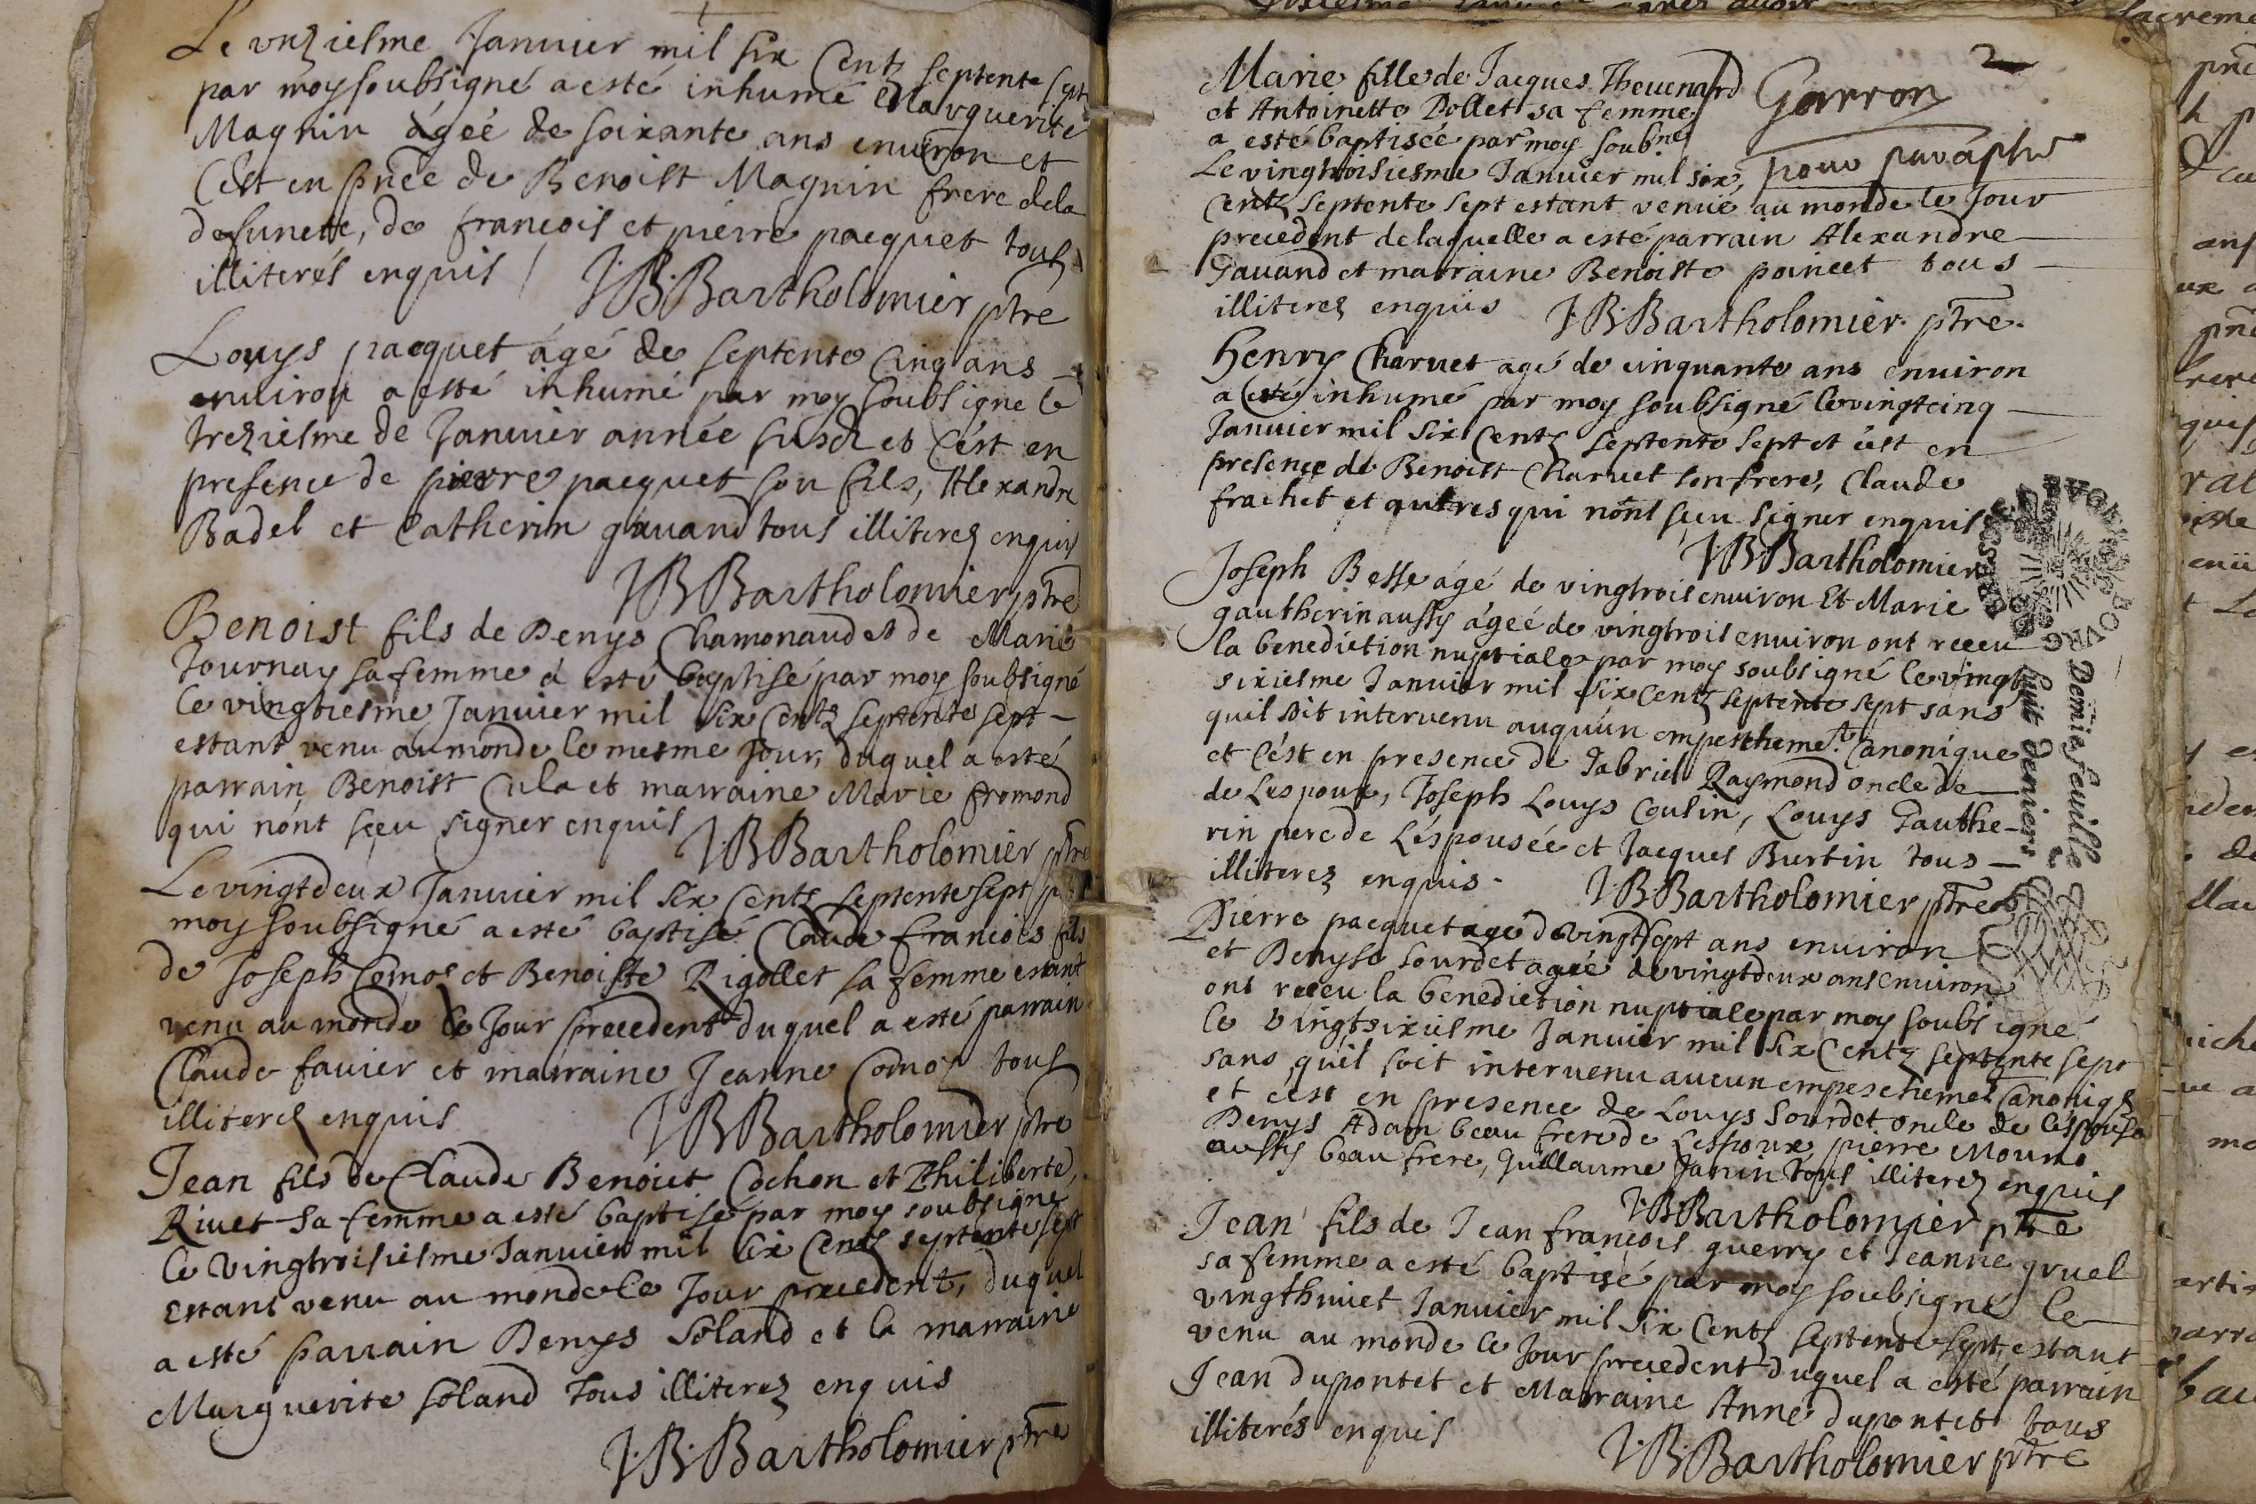 Le unziesme Januier mil six Centz septente sept
par moy soubsigné a esté inhumé Marguerite
Magnin ágeé de soixante ans enuiron et
C'est en pnce de Benoist Magnin frere de la
defunctte, de francois et pierre pacquet tous
illiterés enquis
J.B.Bartholomier ptre
Louys pacquet ágé de septente Cinq ans
enuiron a esté inhumé par moy soubsigne le
treziesme de Januier année susd et C'est en
presence de pierre pacquet son fils, Alexandre
Badel et Catherin gauand tous illiterez enquis
J.B.Bartholomier ptre
Benoist fils de Denys Chamonaud et de Marie
Tournay sa femme a esté baptisé par moy soubsigné
le vingtiesme Januier mil six Centz septente sept
estant venu au monde le mesme Jour, duquel a esté
parrain Benoist Cula et marraine Marie fromond
qui n'ont sçeu signer enquis
J.B.Bartholomier ptre
Le vingtdeux Januier mil six Centz septente sept p
moy soubsigné a esté baptisé Claude francois fils
de Joseph Comos et Benoiste Rigollet sa femme estant
venu au monde le Jour precedent duquel a esté parrain
Claude fauier et marraine Jeanne Comos tous
illiterez enquis
J.B.Bartholomier ptre
Jean fils de Claude Benoict Cochon et Philiberte
Riuet sa femme a esté baptisé par moy soubsigne
le vingtroisiesme Januier mil six Centz septente sept
estant venu au monde le Jour precedent, duquel
a esté parrain Denys Soland et la marraine
Marguerite Soland tous illiterez enquis
J.B.Bartholomier ptre
2
Marie fille de Jacques Theuenard
et Antoinette Dollet sa femme
a esté baptisée par moy soubné
Garron
pour paraphe
Le vingtroisiesme Januier mil six
Centz septente sept estant venue au monde le Jour
precedent de laquelle a esté parrain Alexandre
Gauand et marraine Benoiste poincet tous
illiterez enquis
J.B.Bartholomier ptre.
Henry Charuet agé de cinquante ans enuiron
a esté inhumé par moy soubsigné le vingtcinq
Januier mil six Centz septente sept et c'est en
presence de Benoist Charuet son frere, Claude
frachet et autres qui n'ont sçeu signer enquis
J.B.Bartholomier
Joseph Besse ágé de vingtrois enuiron Et Marie
gautherin aussy ágeé de vingtrois enuiron ont receu
la benediction nuptiale par moy soubsigné le vingt
sixiesme Januier mil six Centz septente sept sans
quil soit interuenu auquun empeschemet. Canonique
et C'est en presence de Gabriel Raymond oncle de
de Lespoux, Joseph Louys Coulin, Louys Gauthe-
rin pere de L'éspousée et Jacques Burtin tous
illiterez enquis.
J.B.Bartholomier ptre
Demie feuille
huit deniers
Pierre pacquet agé de vingt sept ans enuiron
et Denyse Sourdet ageé de vingtdeux ans enuiron
ont receu la benediction nuptiale par moy soubsigné
le vingtsixiesme Januier mil six Centz septente sept
sans qu'il soit interuenu aucun empeschemet Canoniq
et c'est en presence de Louys Sourdet oncle de l'éspouse
Denys Adam beau frere de Lespoux pierre Mouno
aussy beau frere, guillaume Janin tous illiterez enquis
J.B.Bartholomier ptre
Jean fils de Jean francois guerry et Jeanne gruel
sa femme a esté baptisé par moy soubsigné le
vingthuiet Januier mil six Centz septente sept, estant
venu au monde le Jour precedent duquel a esté parrain
Jean dupontet et Marraine Anne dupontet tous
illiterés enquis
J.B.Bartholomier ptre